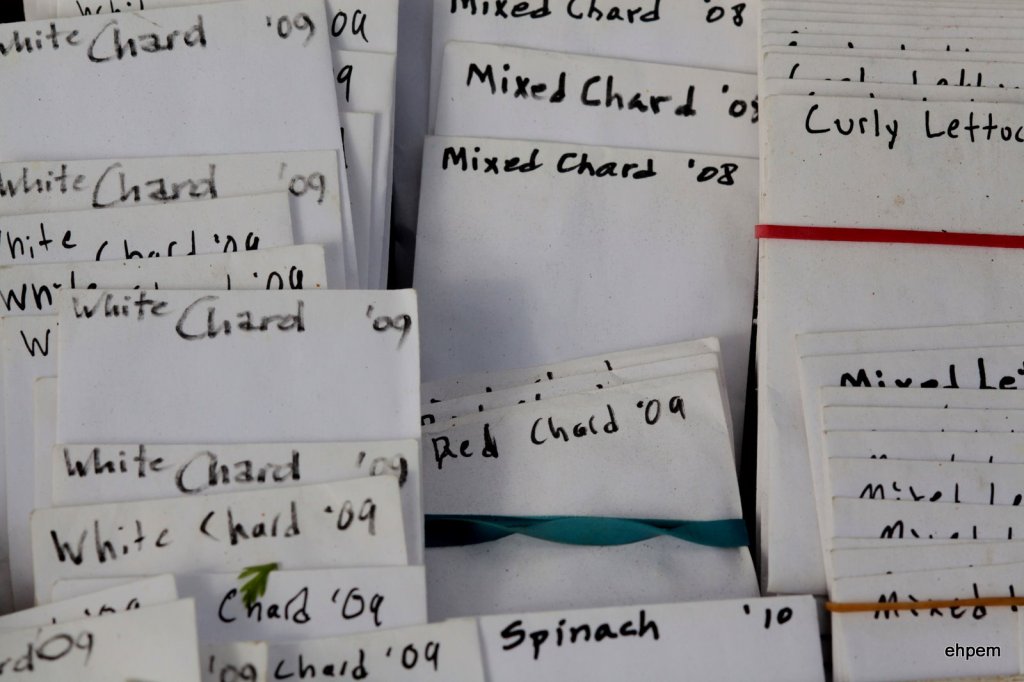 White Chard '09
09
9
White Chard '09
White Chard '09
White '09
W
White Chard '09
White Chard '09
White Chard '09
Chard '09
rd '09
'09
Chard '09
Mixed Chard '08
Mixed Chard '0
Mixed Chard '08
Red Chard '09
Spinach '10
Curly Lettuc
Mixed Le
Mixed
ehpem